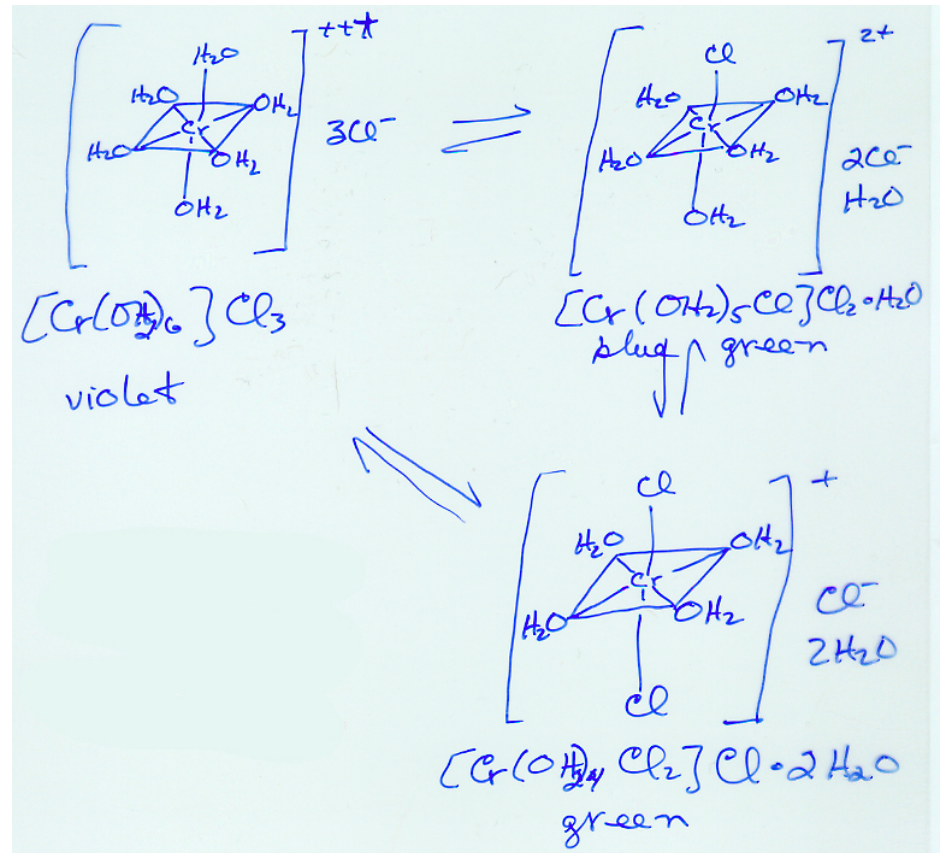 +++
H₂O
H₂O
OH₂
Cr
H₂O
OH₂
OH₂
3Cl⁻
[Cr(OH₂)₆]Cl₃
violet
2+
Cl
H₂O
OH₂
Cr
H₂O
OH₂
OH₂
2Cl⁻
H₂O
[Cr(OH₂)₅Cl]Cl₂•H₂O
green
+
Cl
H₂O
OH₂
Cr
H₂O
OH₂
Cl
Cl⁻
2H₂O
[Cr(OH₂)₄Cl₂]Cl•2H₂O
green